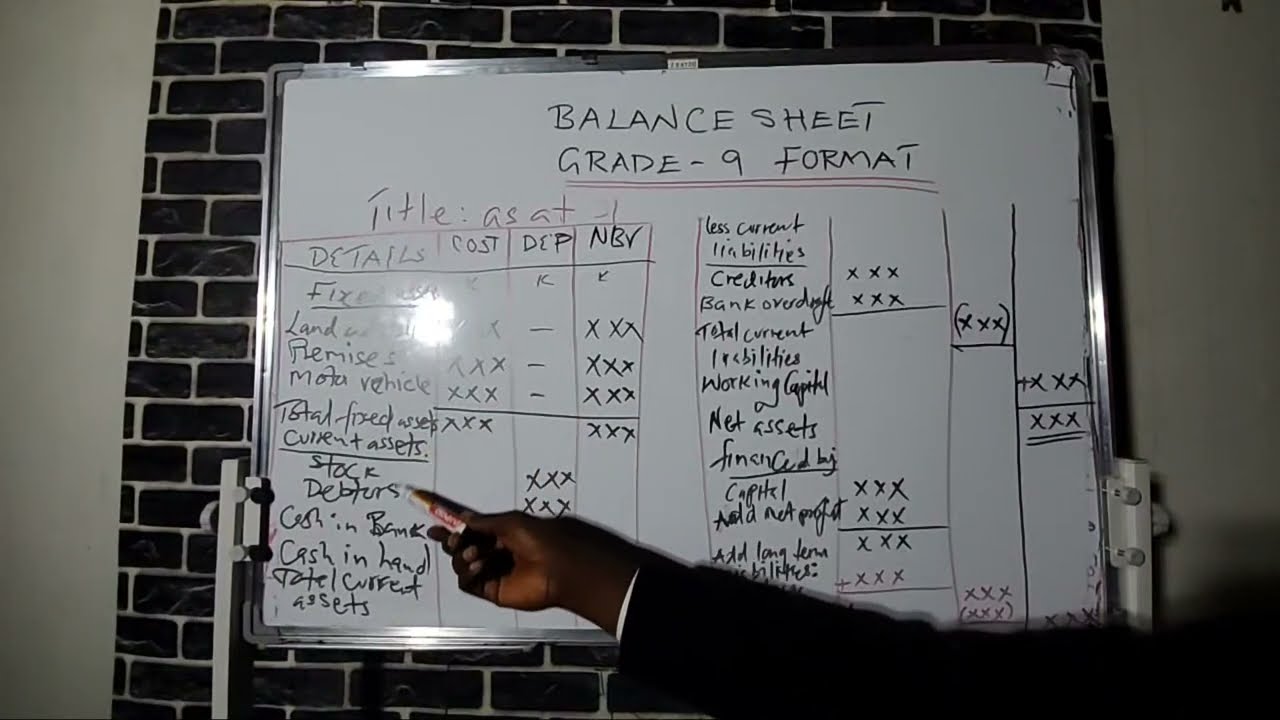 BALANCE SHEET
GRADE-9 FORMAT
Title: as at -
DETAILS COST DEP NBV
K K K
Fixed
Land x - xxx
Premises xxx - xxx
Motor vehicle xxx - xxx
Total fixed assets xxx xxx
Current assets.
Stock xxx
Debtors xxx
Cash in Bank
Cash in hand
Total current
assets
less current
liabilities
Creditors xxx
Bank overdraft xxx
(xxx)
Total current
liabilities
Working Capital +xxx
or
Net assets xxx
financed by
Capital xxx
Add net profit xxx
xxx
Add long term
liabilities: +xxx
xxx
(xxx)
xxx